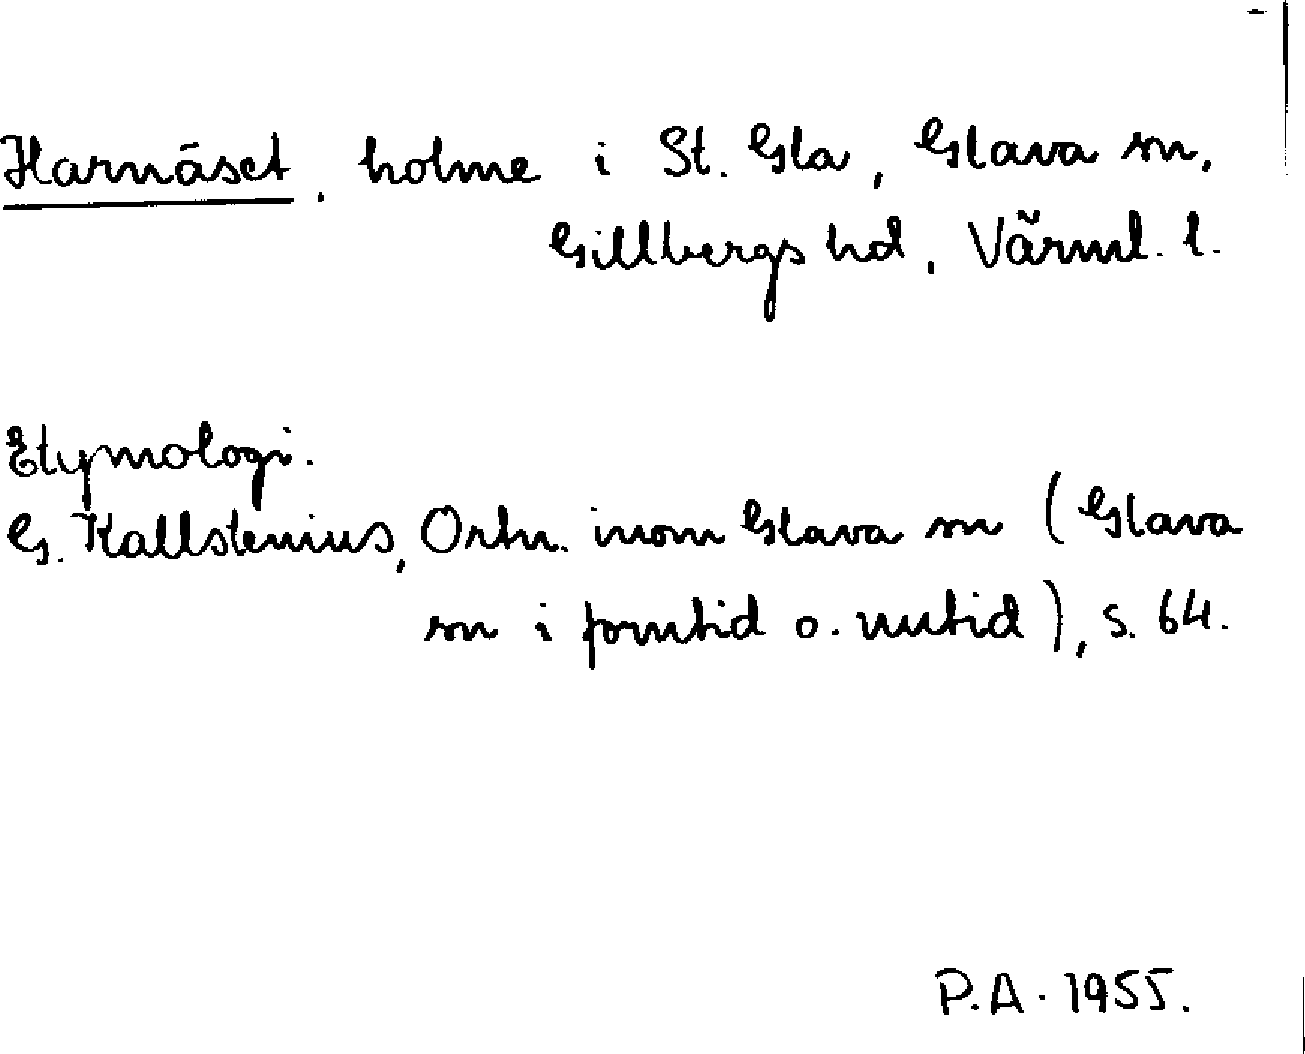 Harnäset, holme i St. Gla, Glava sn,
Gillbergs hd, Värml. l.
Etymologi.
G. Kallstenius, Ortn. inom Glava sn (Glava
sn i forntid o. nutid), s. 64.
P.A. 1955.